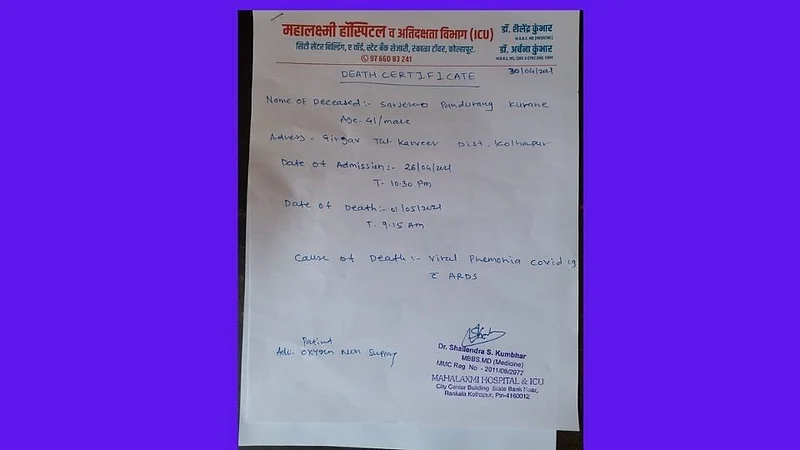 महालक्ष्मी हॉस्पिटल व अतिदक्षता विभाग (ICU)
सिटी सेंटर बिल्डिंग, ए वॉर्ड, स्टेट बँक शेजारी, रंकाळा टॉवर, कोल्हापूर.
97 660 83 241
डॉ. शैलेंद्र कुंभार
M.B.B.S. MD (MEDICINE)
डॉ. अर्चना कुंभार
DEATH CERTIFICATE
30/04/2021
Name of Deceased:- Sarjerao Pandurang Kurane
Age. 41/male
Adress - Girgav Tal. Karveer Dist. Kolhapur
Date of Admission:- 26/04/2021
T- 10:30 Pm
Date of Death:- 01/05/2021
T. 9:15 Am
Cause of Death:- Viral Phemonia Covid 19
c̄ ARDS
Patient
Adv. oxygen
Dr. Shailendra S. Kumbhar
MBBS,MD (Medicine)
MMC Reg No - 2011/09/2977
MAHALAXMI HOSPITAL & ICU
City Center Building State Bank Near,
Rankala Kolhapur, Pin-4160012